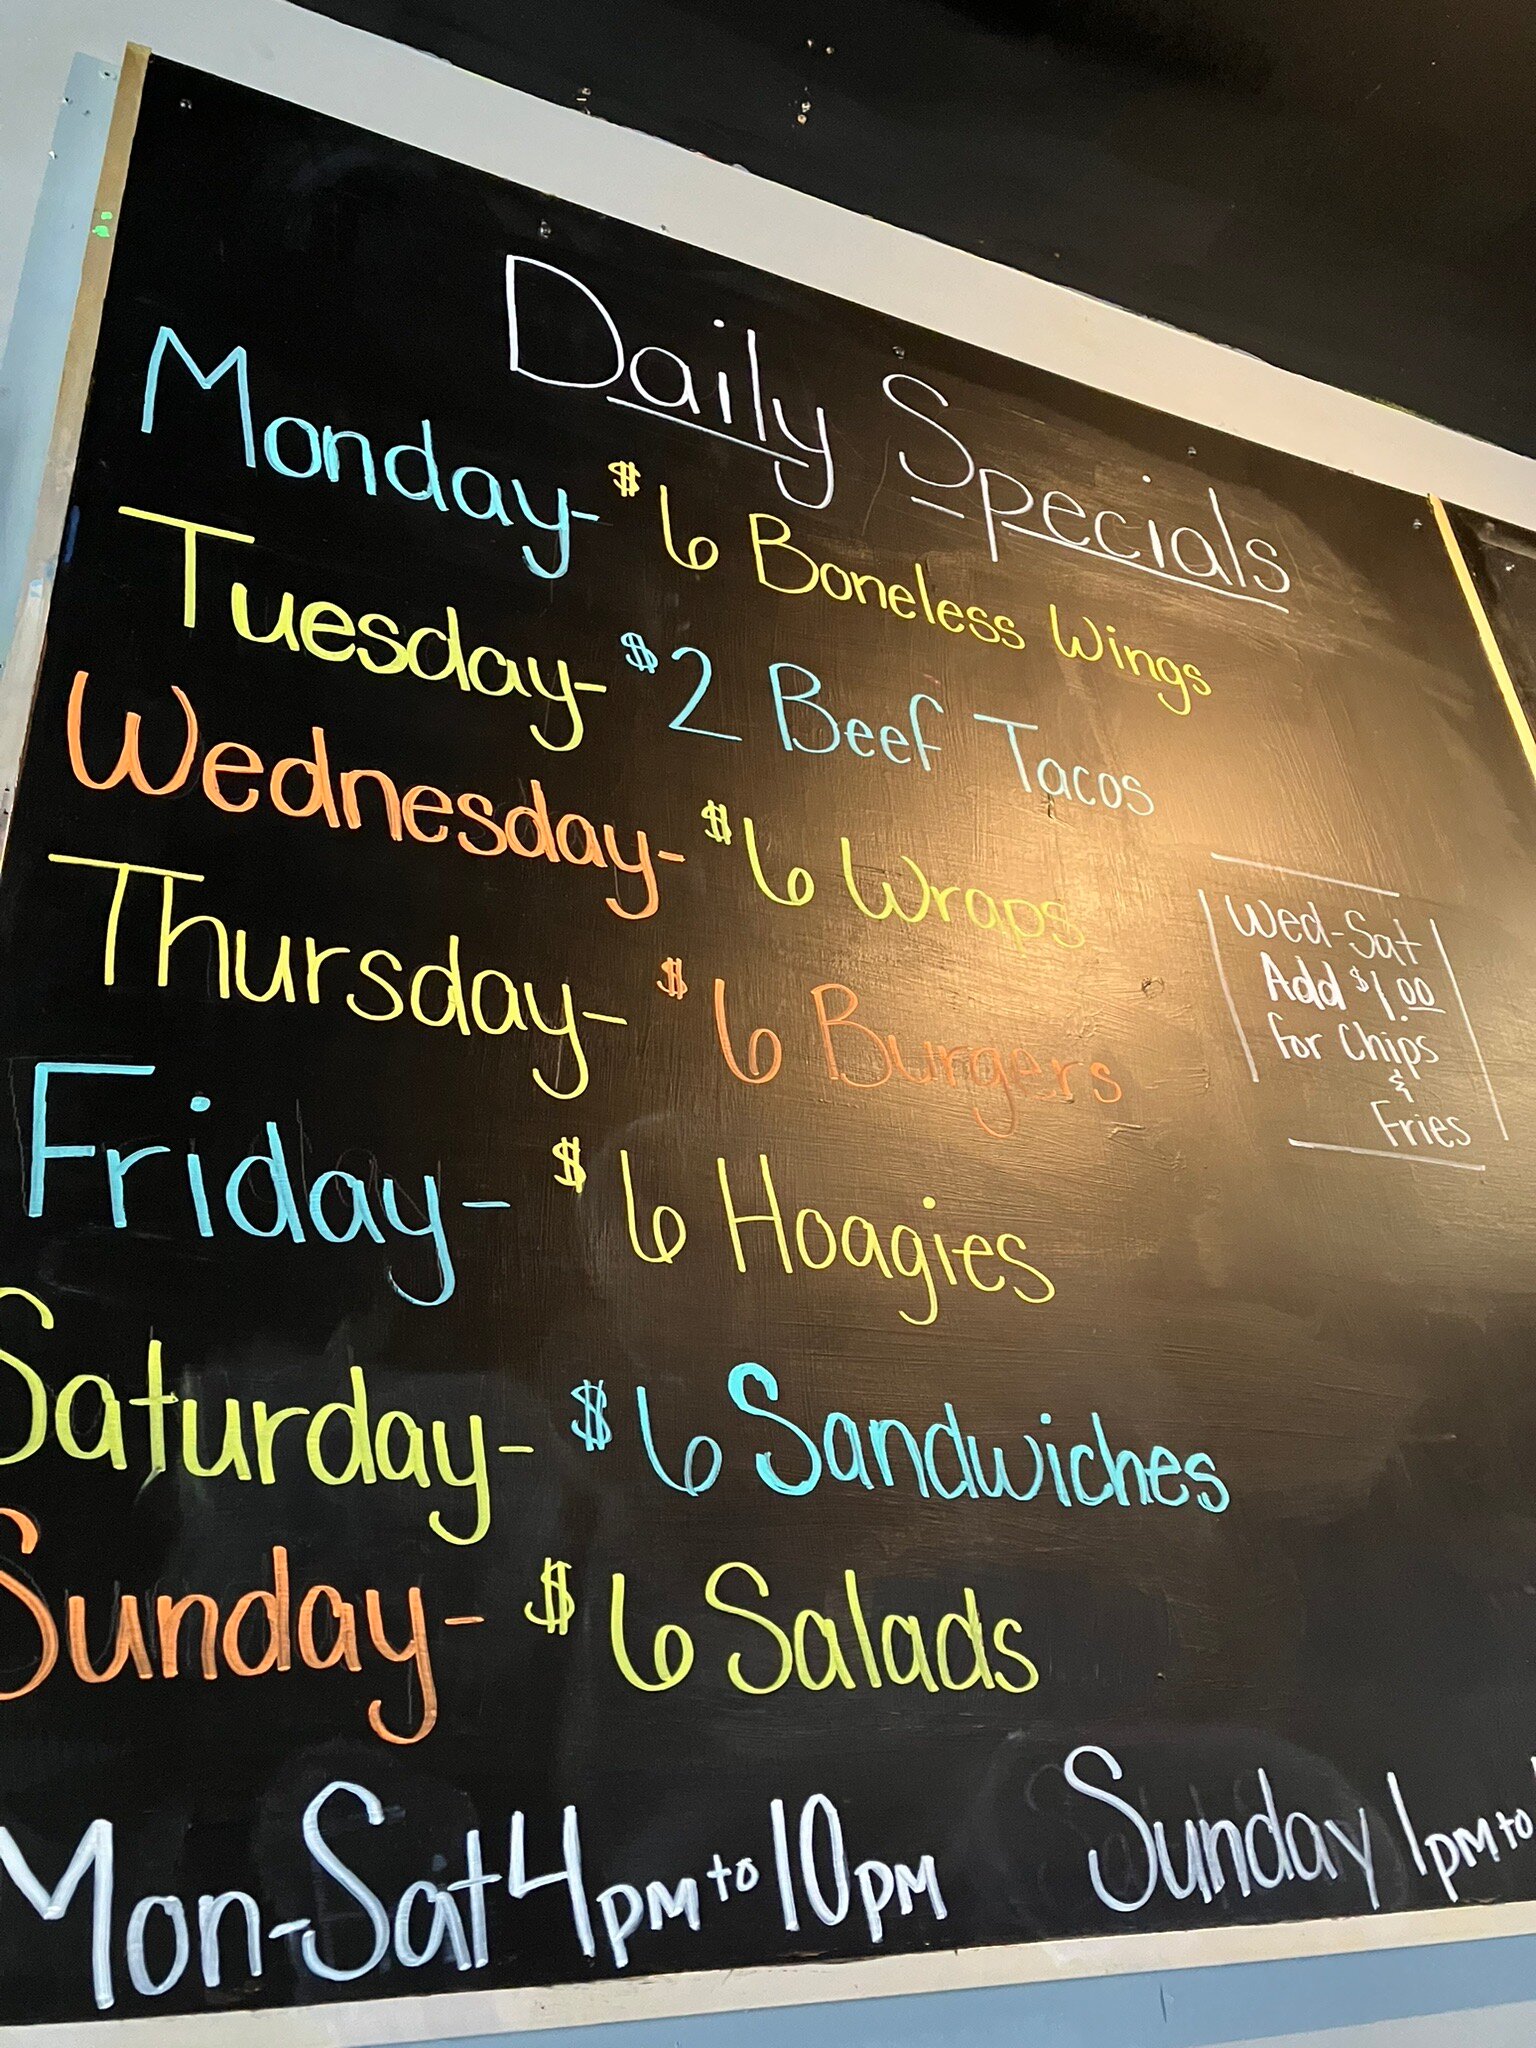 Daily Specials
Monday- $6 Boneless Wings
Tuesday- $2 Beef Tacos
Wednesday- $6 Wraps
Thursday- $6 Burgers
Friday- $6 Hoagies
Saturday- $6 Sandwiches
Sunday- $6 Salads
Wed-Sat
Add $1.00
for Chips
&
Fries
Mon-Sat 4pm to 10pm
Sunday 1pm to